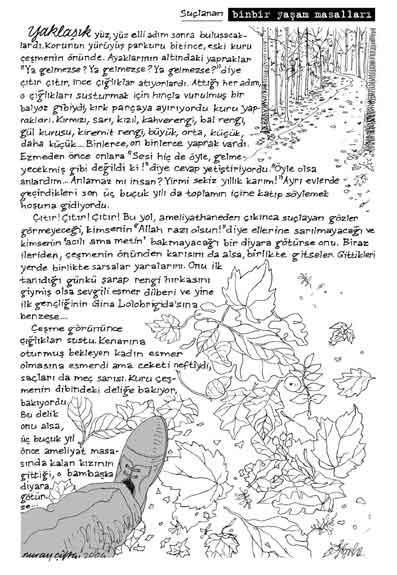 Suçlanan binbir yaşam masalları
Yaklaşık yüz, yüz elli adım sonra buluşacak-
lardı. Korunun yürüyüş parkuru bitince, eski kuru
çeşmenin önünde. Ayaklarının altındaki yapraklar
"Ya gelmezse? Ya gelmezse? Ya gelmezse?" diye
çıtır çıtır, ince çığlıklar atıyorlardı. Attığı her adım,
o çığlıkları susturmak için hınçla vurulmuş bir
balyoz gibiydi, kırk parçaya ayırıyordu kuru yap-
rakları. Kırmızı, sarı, kızıl, kahverengi, bal rengi,
gül kurusu, kiremit rengi, büyük, orta, küçük,
daha küçük... Binlerce, on binlerce yaprak vardı.
Ezmeden önce onlara "Sesi hiç de öyle, gelme-
yecekmiş gibi değildi ki!" diye cevap yetiştiriyordu. "Öyle olsa
anlardım... Anlamaz mı insan? Yirmi sekiz yıllık karım!" Ayrı evlerde
geçirdikleri son üç buçuk yılı da toplamın içine katıp söylemek
hoşuna gidiyordu.
Çıtır! Çıtır! Çıtır! Bu yol, ameliyathaneden çıkınca suçlayan gözler
görmeyeceği, kimsenin "Allah razı olsun!" diye ellerine sarılmayacağı ve
kimsenin 'acılı ama metin' bakmayacağı bir diyara götürse onu. Biraz
ileriden, çeşmenin önünden karısını da alsa, birlikte gitseler. Gittikleri
yerde birlikte sarsalar yaralarını. Onu ilk
tanıdığı günkü şarap rengi hırkasını
giymiş olsa sevgili esmer dilberi ve yine
ilk gençliğinin Gina Lolobrigida'sına
benzese...
Çeşme görününce
çığlıklar sustu. Kenarına
oturmuş bekleyen kadın esmer
olmasına esmerdi ama ceketi neftiydi,
saçları da meç sarısı. Kuru çeş-
menin dibindeki deliğe bakıyor,
bakıyordu.
Bu delik
onu alsa,
üç buçuk yıl
önce ameliyat masa-
sında kalan kızının
gittiği, o bambaşka
diyara
götür
se...
nuray çiftçi 2004